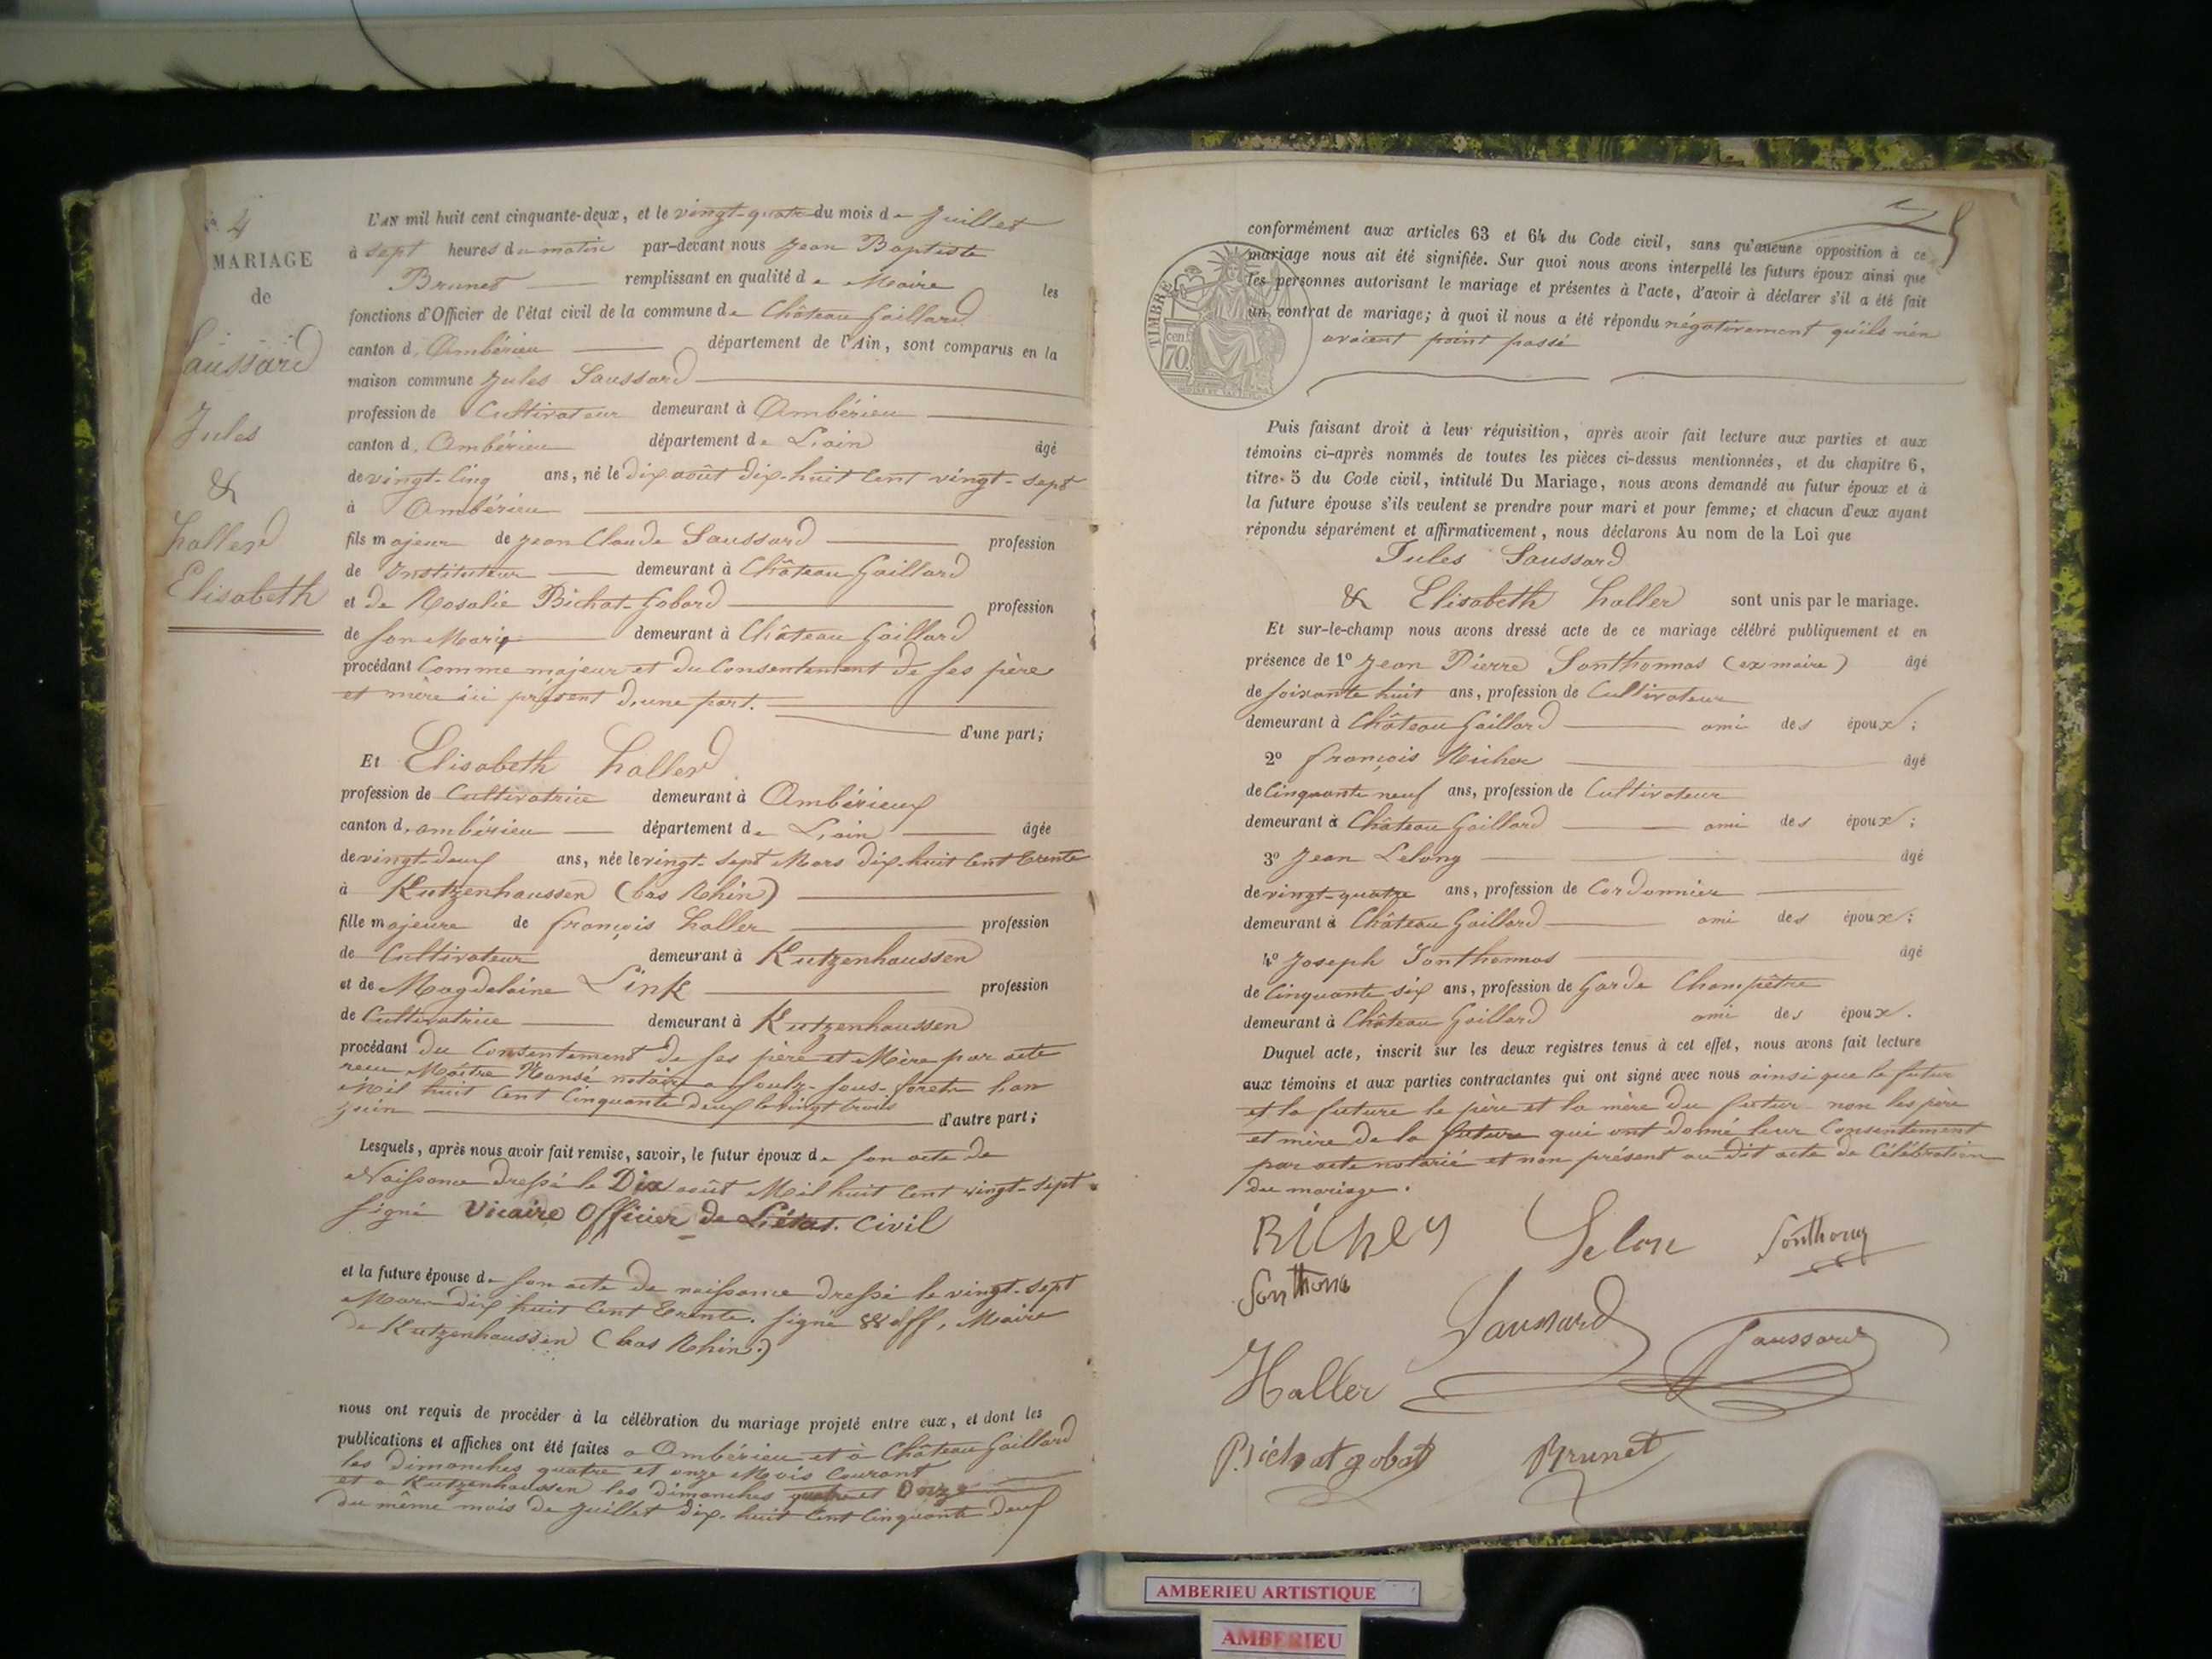 4
MARIAGE
de
Saussard
Jules
&
haller
Elisabeth
L'AN mil huit cent cinquante-deux, et le vingt-quatre du mois de Juillet
à sept heures du matin par-devant nous Jean Baptiste
Brunet remplissant en qualité de Maire les
fonctions d'Officier de l'état civil de la commune de Château Gaillard
canton d'Ambérieu département de l'Ain, sont comparus en la
maison commune Jules Saussard
profession de Cultivateur demeurant à Ambérieu
canton d'Ambérieu département de L'ain âgé
de vingt-cinq ans, né le dix août dix-huit cent vingt-sept
à Ambérieu
fils majeur de Jean Claude Saussard profession
de Instituteur demeurant à Château Gaillard
et de Rosalie Bichat-Gobard profession
de son Mari demeurant à Château Gaillard
procédant Comme majeur et du Consentement de ses père
et mère ici présent d'une part.
d'une part;
Et Elisabeth haller
profession de Cultivatrice demeurant à Ambérieux
canton d'ambérieu département de L'ain âgée
de vingt-deux ans, née le vingt-sept Mars dix-huit cent trente
à Kutzenhaussen (bas Rhin)
fille majeure de françois haller profession
de Cultivateur demeurant à Kutzenhaussen
et de Magdelaine Link profession
de Cultivatrice demeurant à Kutzenhaussen
procédant du Consentement de ses père et Mère par acte
reçu Maître notaire a Soultz-sous-forêts l'an
Mil huit Cent Cinquante deux le vingt trois
Juin d'autre part;
Lesquels, après nous avoir fait remise, savoir, le futur époux de son acte de
Naissance dressé le Dix août Mil huit Cent vingt-sept
signé Vicaire Officier de L'état. Civil
et la future épouse de son acte de naissance dressé le vingt-sept
Mars dix huit Cent trente. signé Maire
de Kutzenhaussen (bas Rhin.)
nous ont requis de procéder à la célébration du mariage projeté entre eux, et dont les
publications et affiches ont été faites a Ambérieu et à Château Gaillard
les dimanches quatre et onze Mois Courant
et a Kutzenhaussen les dimanches quatre et Onze
du même mois de Juillet dix-huit Cent Cinquante deux
conformément aux articles 63 et 64 du Code civil, sans qu'aucune opposition à ce
mariage nous ait été signifiée. Sur quoi nous avons interpellé les futurs époux ainsi que
les personnes autorisant le mariage et présentes à l'acte, d'avoir à déclarer s'il a été fait
un contrat de mariage; à quoi il nous a été répondu négativement qu'ils n'en
avaient point passé
TIMBRE
cen.
70
Puis faisant droit à leur réquisition, après avoir fait lecture aux parties et aux
témoins ci-après nommés de toutes les pièces ci-dessus mentionnées, et du chapitre 6,
titre 5 du Code civil, intitulé Du Mariage, nous avons demandé au futur époux et à
la future épouse s'ils veulent se prendre pour mari et pour femme; et chacun d'eux ayant
répondu séparément et affirmativement, nous déclarons Au nom de la Loi que
Jules Saussard
& Elisabeth haller sont unis par le mariage.
Et sur-le-champ nous avons dressé acte de ce mariage célébré publiquement et en
présence de 1º Jean Pierre Sonthonnas (ex maire) âgé
de soixante huit ans, profession de Cultivateur
demeurant à Château Gaillard ami des époux;
2º françois Richer âgé
de Cinquante neuf ans, profession de Cultivateur
demeurant à Château Gaillard ami des époux;
3º Jean Lelong âgé
de vingt-quatre ans, profession de Cordonnier
demeurant à Château Gaillard ami des époux;
4º Joseph Sonthonnas âgé
de Cinquante six ans, profession de Garde Champêtre
demeurant à Château Gaillard ami des époux.
Duquel acte, inscrit sur les deux registres tenus à cet effet, nous avons fait lecture
aux témoins et aux parties contractantes qui ont signé avec nous ainsi que le futur
et la future le père et la mère du futur non les père
et mère de la future qui ont donné leur Consentement
par acte notarié et non présent au dit acte de Célébration
du mariage.
Richer Lelon
Saussard Saussard
Haller
Bichat gobat Brunet
AMBERIEU ARTISTIQUE
AMBERIEU